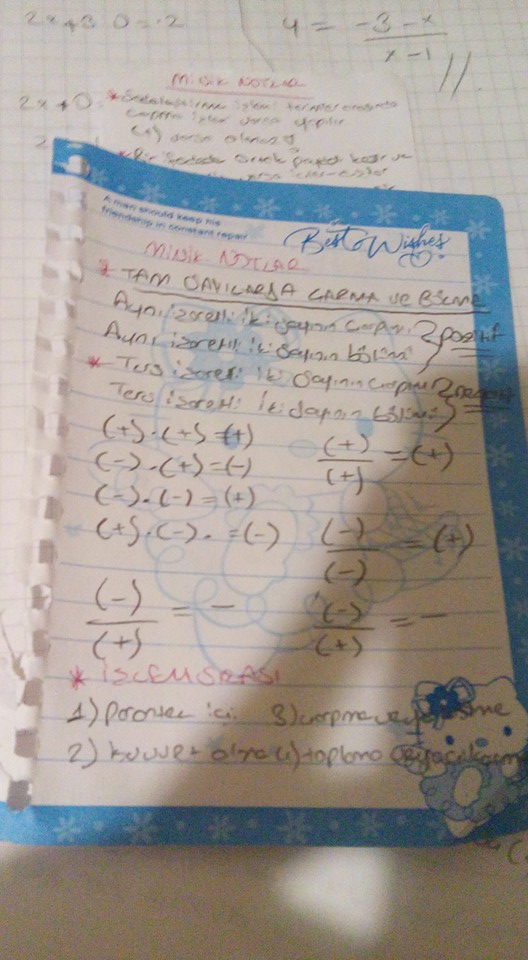 2x+3 0=-2
y = -3-x / x-1 //
MİNİK NOTLAR
2x+0
* Sadeleştirme işlemi terimler arasında
çarpma işlemi varsa yapılır
(+) varsa olmaz
A man should keep his
friendship in constant repair
Best Wishes
MİNİK NOTLAR
* TAM SAYILARDA ÇARPMA ve BÖLME
Aynı işaretli iki sayının çarpımı } pozitif
Aynı işaretli iki sayının bölümü
* Ters işaretli iki sayının çarpımı } negatif
Ters işaretli iki sayının bölümü
(+).(+)=(+)
(-).(+)=(-)
(-).(-)=(+)
(+).(-).=(-)
(+)/(+) = (+)
(-)/(-) = (+)
(-)/(+) = -
(-)/(+) = -
* İŞLEM SIRASI
1) Parantez içi 3) çarpma veya bölme
2) kuvvet alma 4) toplama veya çıkarma